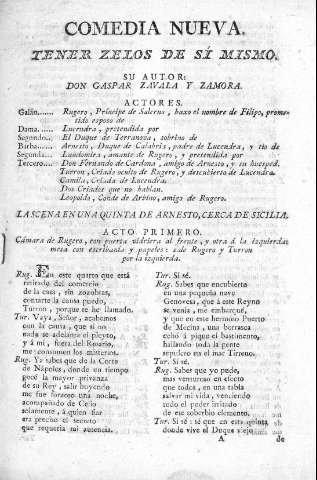 COMEDIA NUEVA.
TENER ZELOS DE SÍ MISMO.
SU AUTOR:
DON GASPAR ZAVALA Y ZAMORA.
ACTORES.
Galán...... Rugero, Príncipe de Salerno, baxo el nombre de Filipo, prome-
tido esposo de
Dama...... Lucendra, pretendida por
Segundo... El Duque de Terranova, sobrino de
Barba...... Arnesto, Duque de Calabria, padre de Lucendra, y tio de
Segunda... Laudomira, amante de Rugero, y pretendida por
Tercero... Don Fernando de Cardona, amigo de Arnesto, y su huesped.
Turron, Criado oculto de Rugero, y descubierto de Lucendra.
Camila, Criada de Lucendra.
Dos Criados que no hablan.
Leopoldo, Conde de Arbino, amigo de Rugero.
LA SCENA EN UNA QUINTA DE ARNESTO, CERCA DE SICILIA.
ACTO PRIMERO.
Cámara de Rugero, con puerta vidriera al frente, y otra á la izquierda:
mesa con escribanía y papeles: sale Rugero y Turron
por la izquierda.
Rug. En este quarto que está
retirado del comercio
de la casa, sin zozobras,
contarte la causa puedo,
Turron, porque te he llamado.
Tur. Vaya, Señor, acabemos
con la causa, que si no
nada se adelanta el pleyto,
y á mí, fuera del Rosario,
me consumen los misterios.
Rug. Ya sabes que de la Corte
de Nápoles, donde un tiempo
gocé la mayor privanza
de su Rey, salir huyendo
me fue forzoso una noche,
acompañado de Celio
solamente, á quien fiar
era preciso el secreto
que requeria mi ausencia.
Tur. Si sé.
Rug. Sabes que encubierto
en una pequeña nave
Genovesa, que á este Reyno
se venia, me embarqué,
y que en este hermoso Puerto
de Mecina, una borrasca
echó á pique el bastimento,
hallando toda la gente
sepulcro en el mar Tirreno.
Tur. Si sé.
Rug. Sabes que yo pude,
mas venturoso en efecto
que todos, en una tabla
salvar mi vida, venciendo
todo el poder irritado
de ese soberbio elemento.
Tur. Si sé: sé que en esta quinta
donde vive el Duque viejo
A de